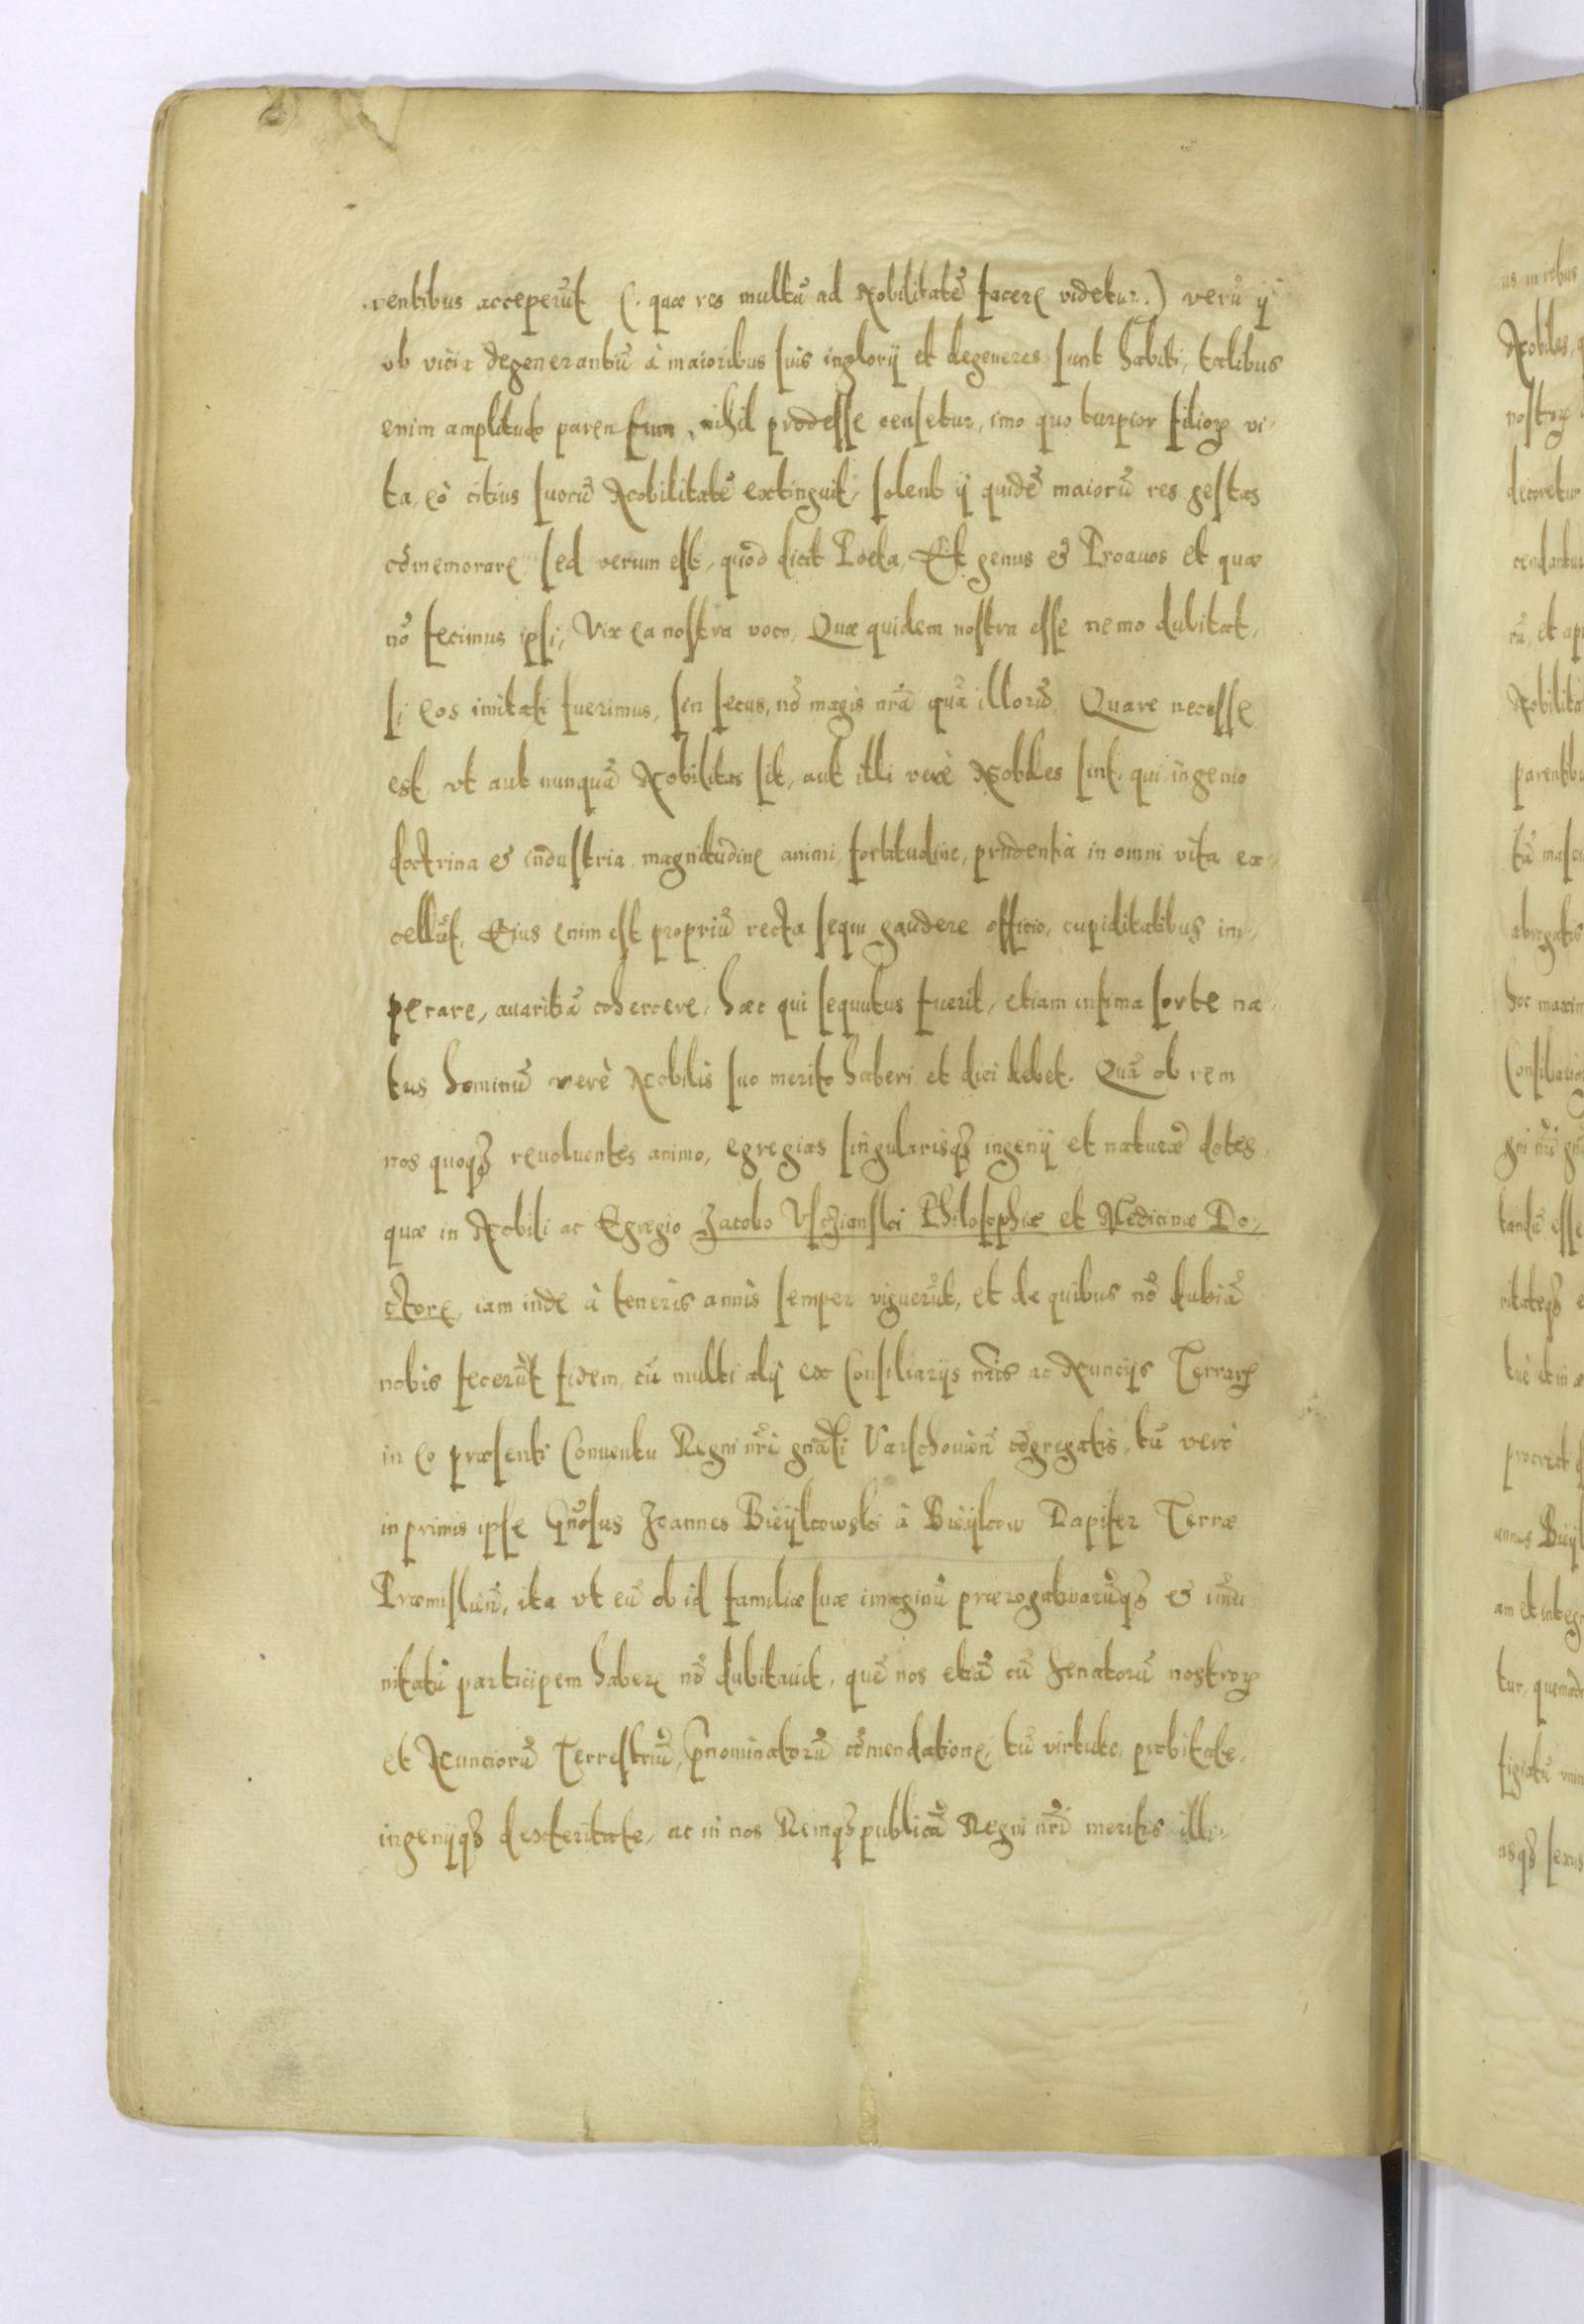 rentibus acceperũt (. quæ res multũ ad Nobilitatẽ facere videtur.) verũ ij
ob vicia degenerantiũ à maioribus suis inglorij et degeneres sunt habiti, talibus
enim amplitudo parentum, nihil prodesse censetur, imo quo turpior filioꝝ vi-
ta, eò citius suorũ Nobilitatẽ extinguit, solent ij quidẽ maiorũ res gestas
cõmemorare sed verum est, quod dicit Poeta, Et genus & Proauos et quæ
nõ fecimus ipsi, Vix ea nostra voco, Quæ quidem nostra esse nemo dubitat,
si eos imitati fuerimus, sin secus, nõ magis nr̃a quã illorũ, Quare necesse
est, vt aut nunquã Nobilitas sit, aut illi verè Nobiles sint, qui ingenio
doctrina & industria magnitudine animi, fortitudine, prudentia in omni vita ex-
cellũt, Eius enim est propriũ recta sequi gaudere officio, cupiditatibus im-
perare, auaritiã cohercere, hæc qui sequutus fuerit, etiam infima sorte na-
tus hominũ verè Nobilis suo merito haberi et dici debet. Quã ob rem
nos quoqꝫ reuoluentes animo, egregias singularisqꝫ ingenij et naturæ dotes,
quæ in Nobili ac Egregio Jacobo Vschienski Philosophiæ et Medicinæ Do-
ctore, iam inde à teneris annis semper viguerũt, et de quibus nõ dubiã
nobis fecerũt fidem, cũ multi alij ex Consiliarijs nr̃is ac Nuncijs Terrarꝝ
in eo præsenti Conuentu Regni nr̃i gnãli Varschouieñ cõgregatis, tũ verò
in primis ipse Gnõsus Joannes Bieÿkowski à Bieÿkow Dapifer Terræ
Præmislieñ, ita vt eũ ob id familiæ suæ imaginũ prærogatiuarũqꝫ & imũ
nitatũ participem habere nõ dubitauit, quẽ nos etiã cũ Senatorũ nostroꝝ
et Nunciorũ Terrestriũ, p̃nominatorũ cõmendatione, tũ virtute, probitate,
ingenijqꝫ dexteritate, ac in nos Remqꝫpublicã Regni nr̃i meritis